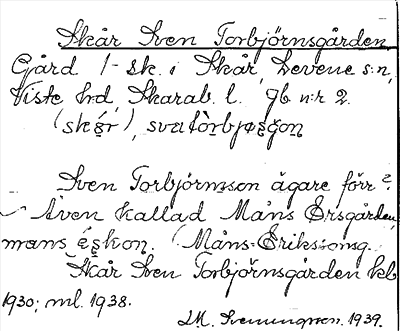 Skår Sven Torbjörnsgården,
Gård 1 sk. i Skår, Levene s:n,
Viste hd, Skarab. l. Jb n:r 2.
(skɛ́r), sven tòrbjøṣgọn
Sven Torbjörnsson ägare förr?
Även kallad Måns Ersgården,
mans ẹ́ṣkon. (Måns-Eriksson sg.
Skår Sven Torbjörnsgården kb
1930; ml. 1938.
M. Svenungsson. 1939.